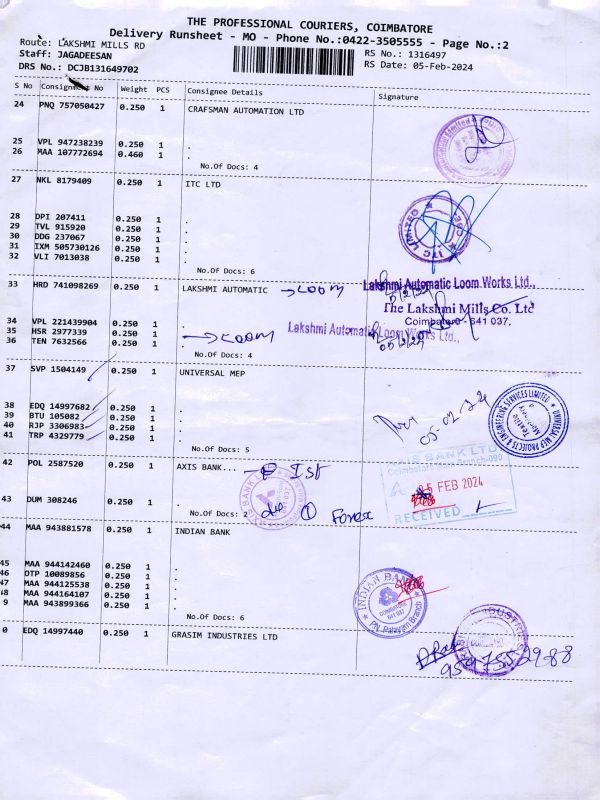 THE PROFESSIONAL COURIERS, COIMBATORE
Delivery Runsheet - MO - Phone No.:0422-3505555 - Page No.:2
Route: LAKSHMI MILLS RD
RS No.: 1316497
Staff: JAGADEESAN
RS Date: 05-Feb-2024
DRS No.: DCJB131649702
S No Consignment No Weight PCS Consignee Details Signature
24 PNQ 757050427 0.250 1 CRAFSMAN AUTOMATION LTD
25 VPL 947238239 0.250 1 .
26 MAA 107772694 0.460 1 .
No.Of Docs: 4
27 NKL 8179409 0.250 1 ITC LTD
28 DPI 207411 0.250 1 .
29 TVL 915920 0.250 1 .
30 DDG 237067 0.250 1 .
31 IXM 505730126 0.250 1 .
32 VLI 7013038 0.250 1 .
No.Of Docs: 6
ITC LIMITED
33 HRD 741098269 0.250 1 LAKSHMI AUTOMATIC → LOOM
Lakshmi Automatic Loom Works Ltd.,
The Lakshmi Mills Co. Ltd
Coimbatore - 641 037.
34 VPL 221439904 0.250 1 .
35 HSR 2977339 0.250 1 .
36 TEN 7632566 0.250 1 . → LOOM
Lakshmi Automatic Loom Works Ltd.,
No.Of Docs: 4
37 SVP 1504149 0.250 1 UNIVERSAL MEP
38 EDQ 14997682 0.250 1 .
39 BTU 105082 0.250 1 .
40 RJP 3306983 0.250 1 .
41 TRP 4329779 0.250 1 .
No.Of Docs: 5
05-02-24
UNIVERSAL MEP PROJECTS & ENGINEERING SERVICES LIMITED
42 POL 2587520 0.250 1 AXIS BANK... Ist
AXIS BANK LTD
05 FEB 2024
RECEIVED
43 DUM 308246 0.250 1 .
No.Of Docs: 2 do ① Forex
44 MAA 943881578 0.250 1 INDIAN BANK
45 MAA 944142460 0.250 1 .
46 OTP 10089856 0.250 1 .
47 MAA 944125538 0.250 1 .
48 MAA 944164107 0.250 1 .
9 MAA 943899366 0.250 1 .
No.Of Docs: 6
INDIAN BANK
COIMBATORE
641 037
PN. Palayam Branch
0 EDQ 14997440 0.250 1 GRASIM INDUSTRIES LTD
9597552988